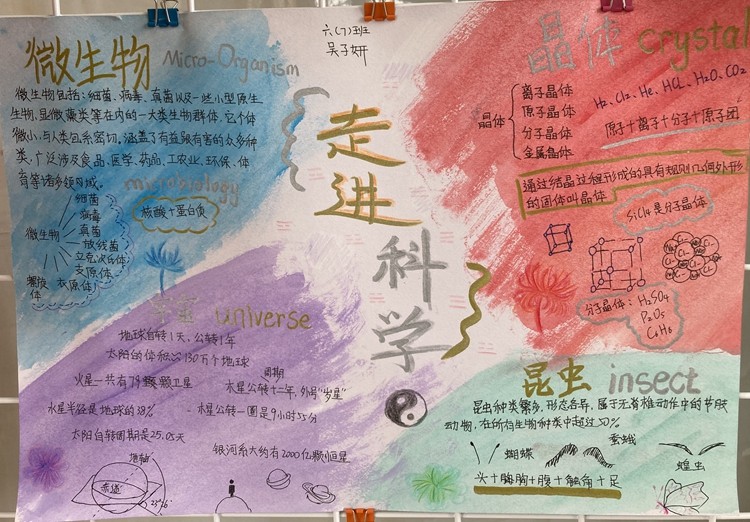 六(7)班
吴子妍
走进
科学
微生物 Micro-Organism
微生物包括:细菌、病毒、真菌以及一些小型原生
生物、显微藻类等在内的一大类生物群体,它个体
微小,与人类关系密切,涵盖了有益跟有害的众多种
类,广泛涉及食品、医学、药品、工农业、环保、体
育等诸多领域。
microbiology
核酸+蛋白质
微生物
细菌
病毒
真菌
放线菌
立克次氏体
支原体
衣原体
螺旋
体
晶体 crystal
晶体
离子晶体
原子晶体
分子晶体
金属晶体
H₂、Cl₂、He、HCl、H₂O、CO₂
原子+离子+分子+原子团
通过结晶过程形成的具有规则几何外形
的固体叫晶体
SiCl₄是分子晶体
分子晶体:H₂SO₄
P₂O₅
C₆H₆
宇宙 universe
地球自转1天,公转1年
太阳的体积≈130万个地球
火星一共有79颗卫星
周期
木星公转十二年,外号“岁星”
水星半径是地球的38%
木星公转一圈是9小时55分
太阳自转周期是25.05天
银河系大约有2000亿颗恒星
地轴
赤道
23°26′
昆虫 insect
昆虫种类繁多、形态各异,属于无脊椎动作中的节肢
动物,在所有生物种类中超过50%
蝴蝶
蚕蛾
蝗虫
头+胸+腹+触角+足